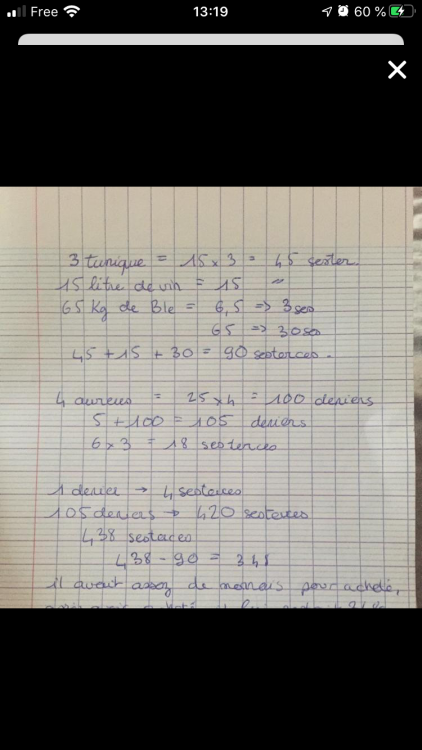 Free
13:19
60 %
3 tunique = 15 x 3 = 45 sester.
15 litre de vin = 15 "
65 Kg de Ble = 6,5 => 3 ses
65 => 30 ses
45 + 15 + 30 = 90 sesterces.
4 aureus = 25 x 4 = 100 deniers
5 + 100 = 105 deniers
6 x 3 = 18 sesterces
1 denier → 4 sesterces
105 deniers → 420 sesterces
438 sesterces
438 - 90 = 348
il avait assez de monnais pour acheté,